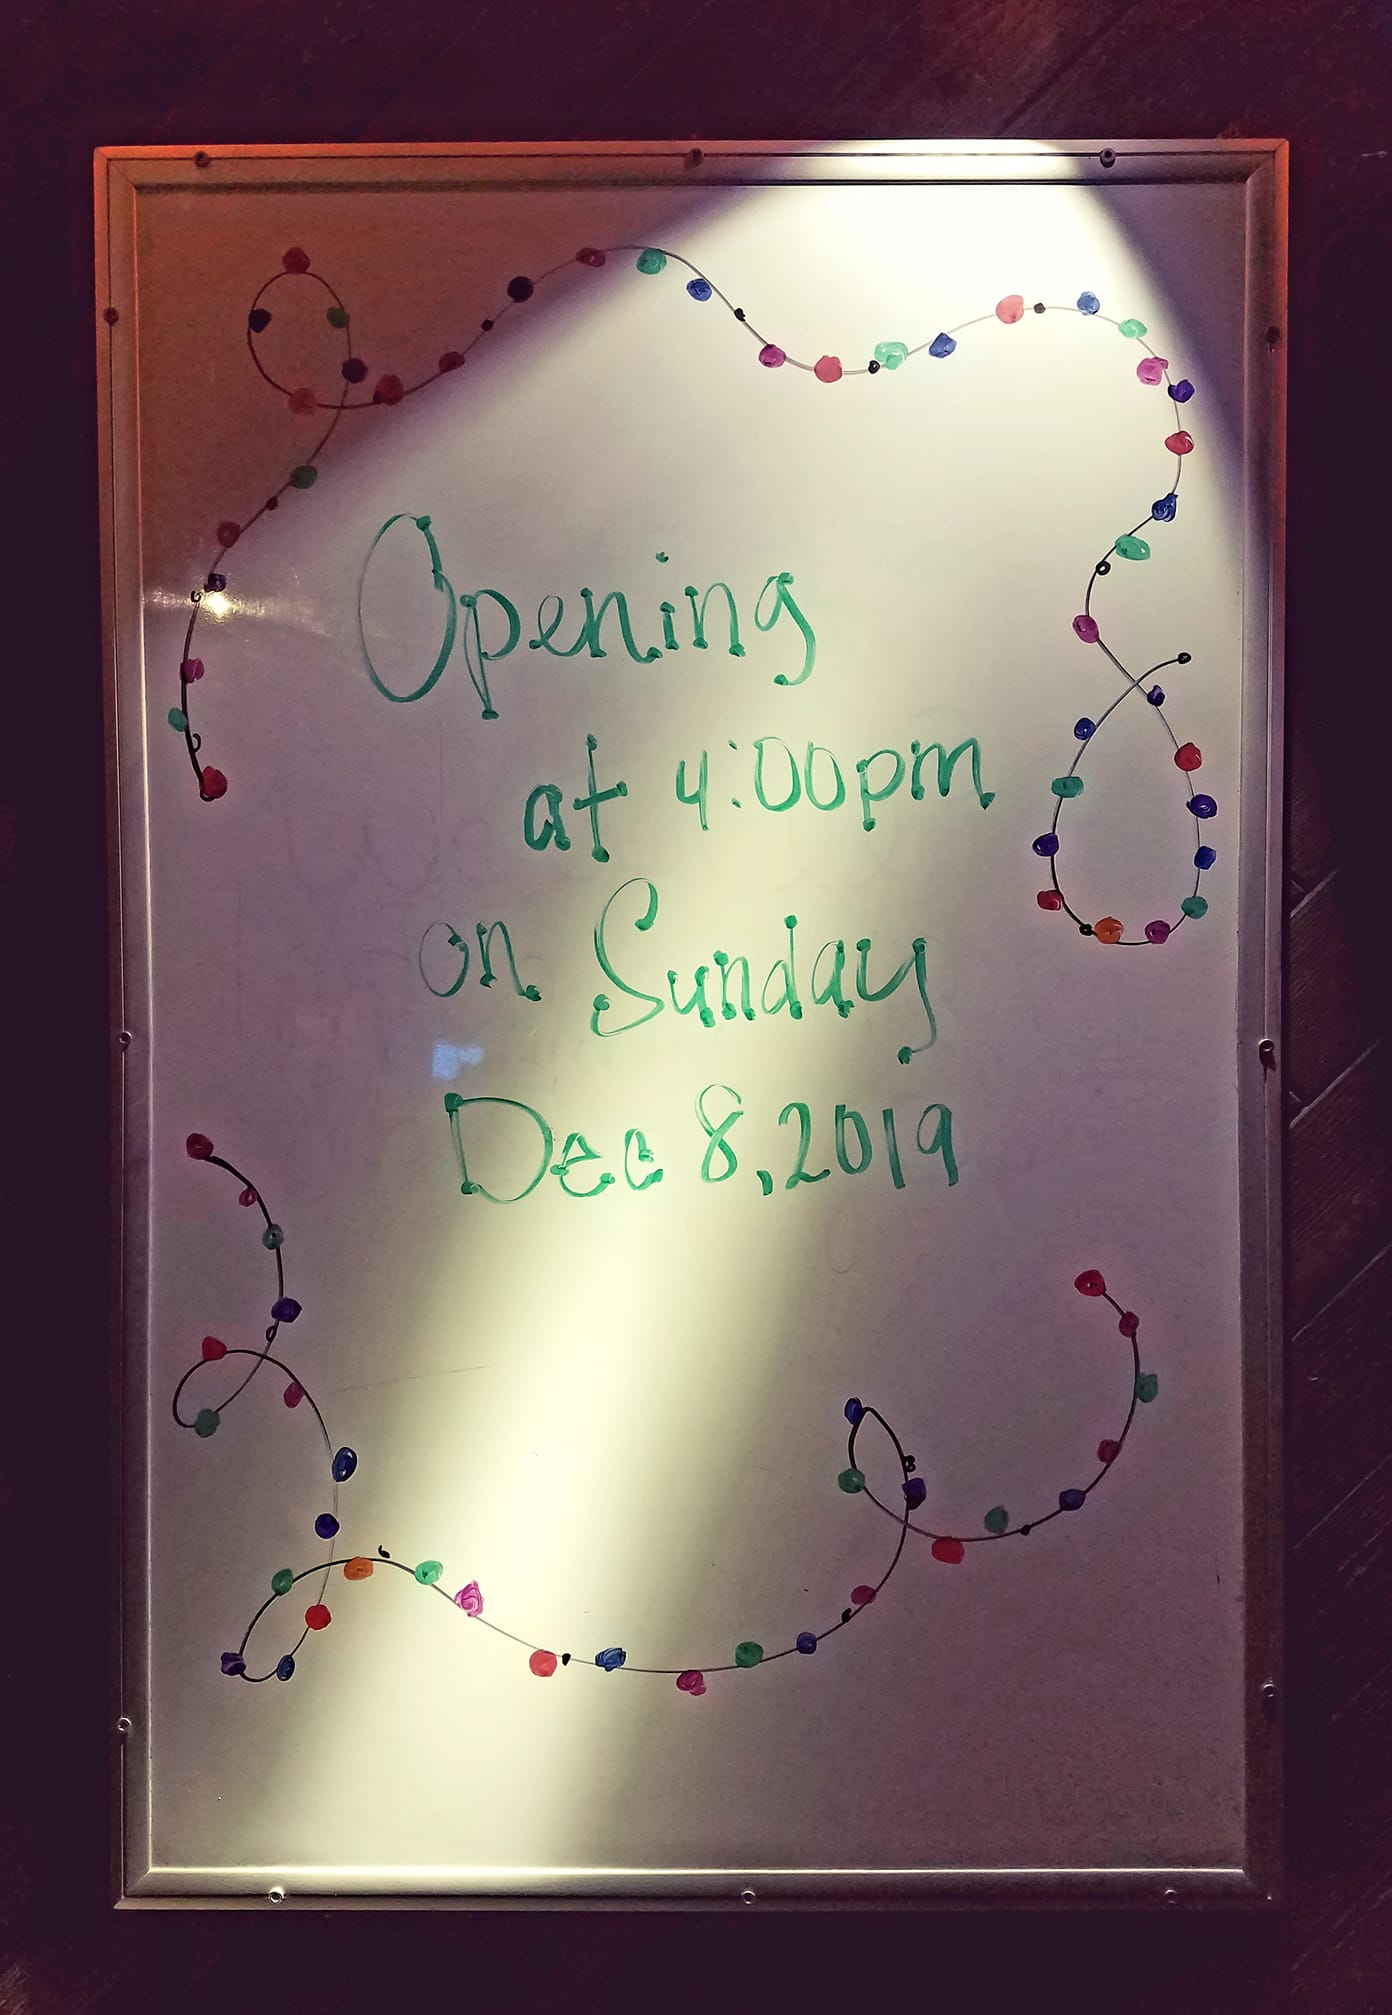 Opening
at 4:00pm
on Sunday
Dec 8, 2019